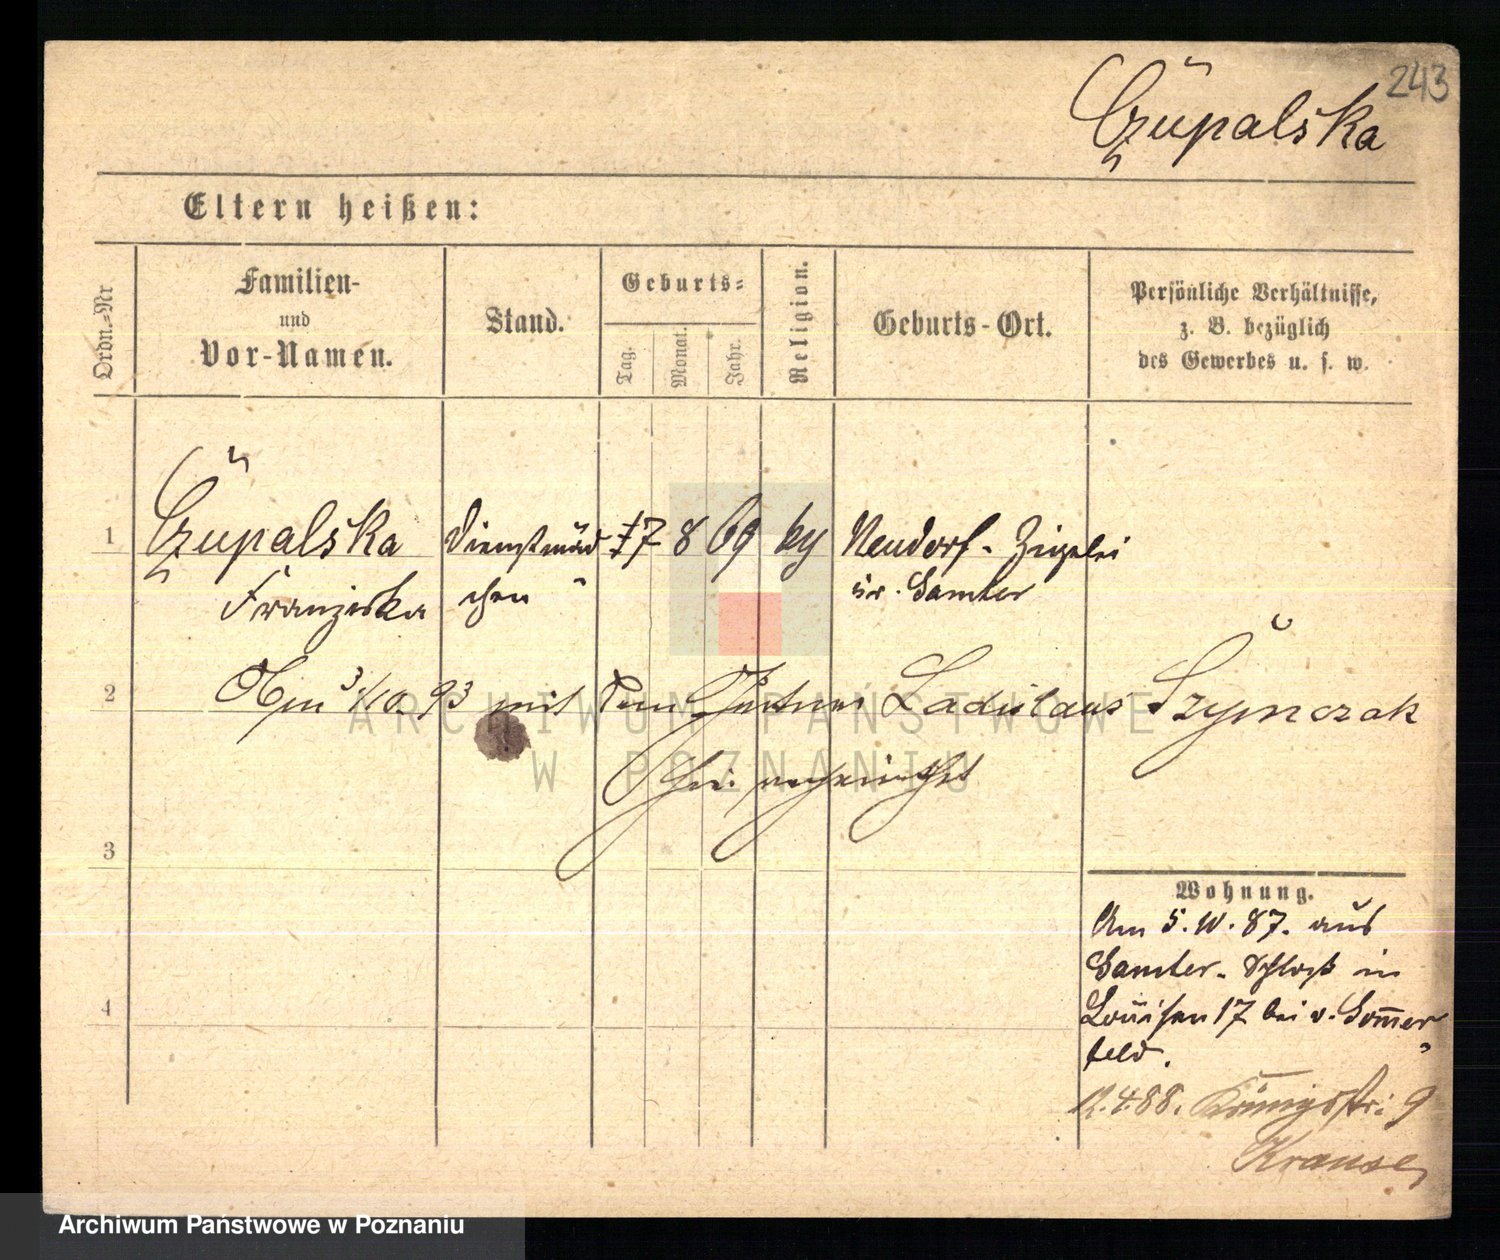 243
Czupalska
Eltern heißen:
Ordn.=Nr
Familien-
und
Vor-Namen.
Stand.
Geburts=
Tag.
Monat.
Jahr.
Religion.
Geburts-Ort.
Persönliche Verhältnisse,
z. B. bezüglich
des Gewerbes u. s. w.
1
Czupalska Dienstmäd 7 8 69 ky Neudorf - Ziegelei
Franziska chen" Kr. Samter
2
Am 3/10. 93 mit dem Gärtner Ladislaus Szymczak
3
Wohnung.
Am 5. IV. 87. aus
Samter - Schloß in
Louisen 17 bei v. Som̅er
feld.
4
4.88. Königsstr: 9
Krause
ARCHIWUM PAŃSTWOWE
W POZNANIU
Archiwum Państwowe w Poznaniu